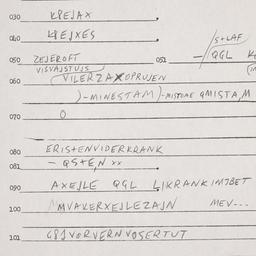 030 KPEJAX
040 KPEJXES
S+LAF
050 ZEJEROFT 051 QGL
VISVAJSTUJS
060 (VILERZAXOPRUJEN
)-MINESTAM)-MISTOME QMISTA,M
070 O
080 ERISTENVIDERKRANK
081 - QSTEN XX
090 AXEJLE QGL LIKRANKIM7BET
100 MVAKERXEJLEZAJN MEV---
101 GPJVORVERNVOSERTUT